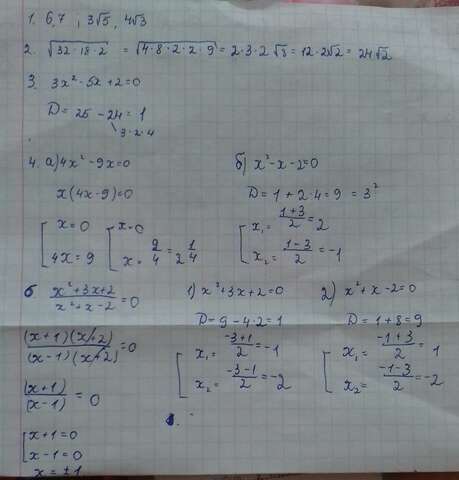 1. 6,7 , 3√5, 4√3
2. √32·18·2 = √4·8·2·2·9 = 2·3·2 √8 = 12·2√2 = 24√2
3. 3x²-5x+2=0
D= 25-24=1
3·2·4
4. а) 4x²-9x=0
x(4x-9)=0
[ x=0
4x=9
[ x=0
x= 9/4 = 2 1/4
б) x²-x-2=0
D=1+2·4=9=3²
[ x₁= (1+3)/2 = 2
x₂= (1-3)/2 = -1
5 (x²+3x+2)/(x²+x-2) = 0
(x+1)(x+2)/(x-1)(x+2) = 0
(x+1)/(x-1) = 0
[ x+1=0
x-1=0
x=±1
1) x²+3x+2=0
D=9-4·2=1
[ x₁= (-3+1)/2 = -1
x₂= (-3-1)/2 = -2
2) x²+x-2=0
D=1+8=9
[ x₁= (-1+3)/2 = 1
x₂= (-1-3)/2 = -2